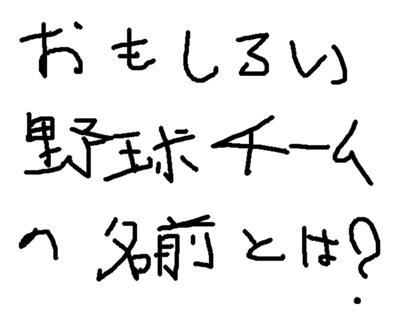 おもしろい
野球チーム
の名前とは?